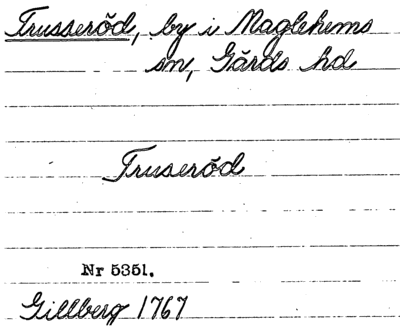 Trusseröd, by i Maglehems
sn, Gärds hd
Truseröd
Nr 5351.
Gillberg 1767